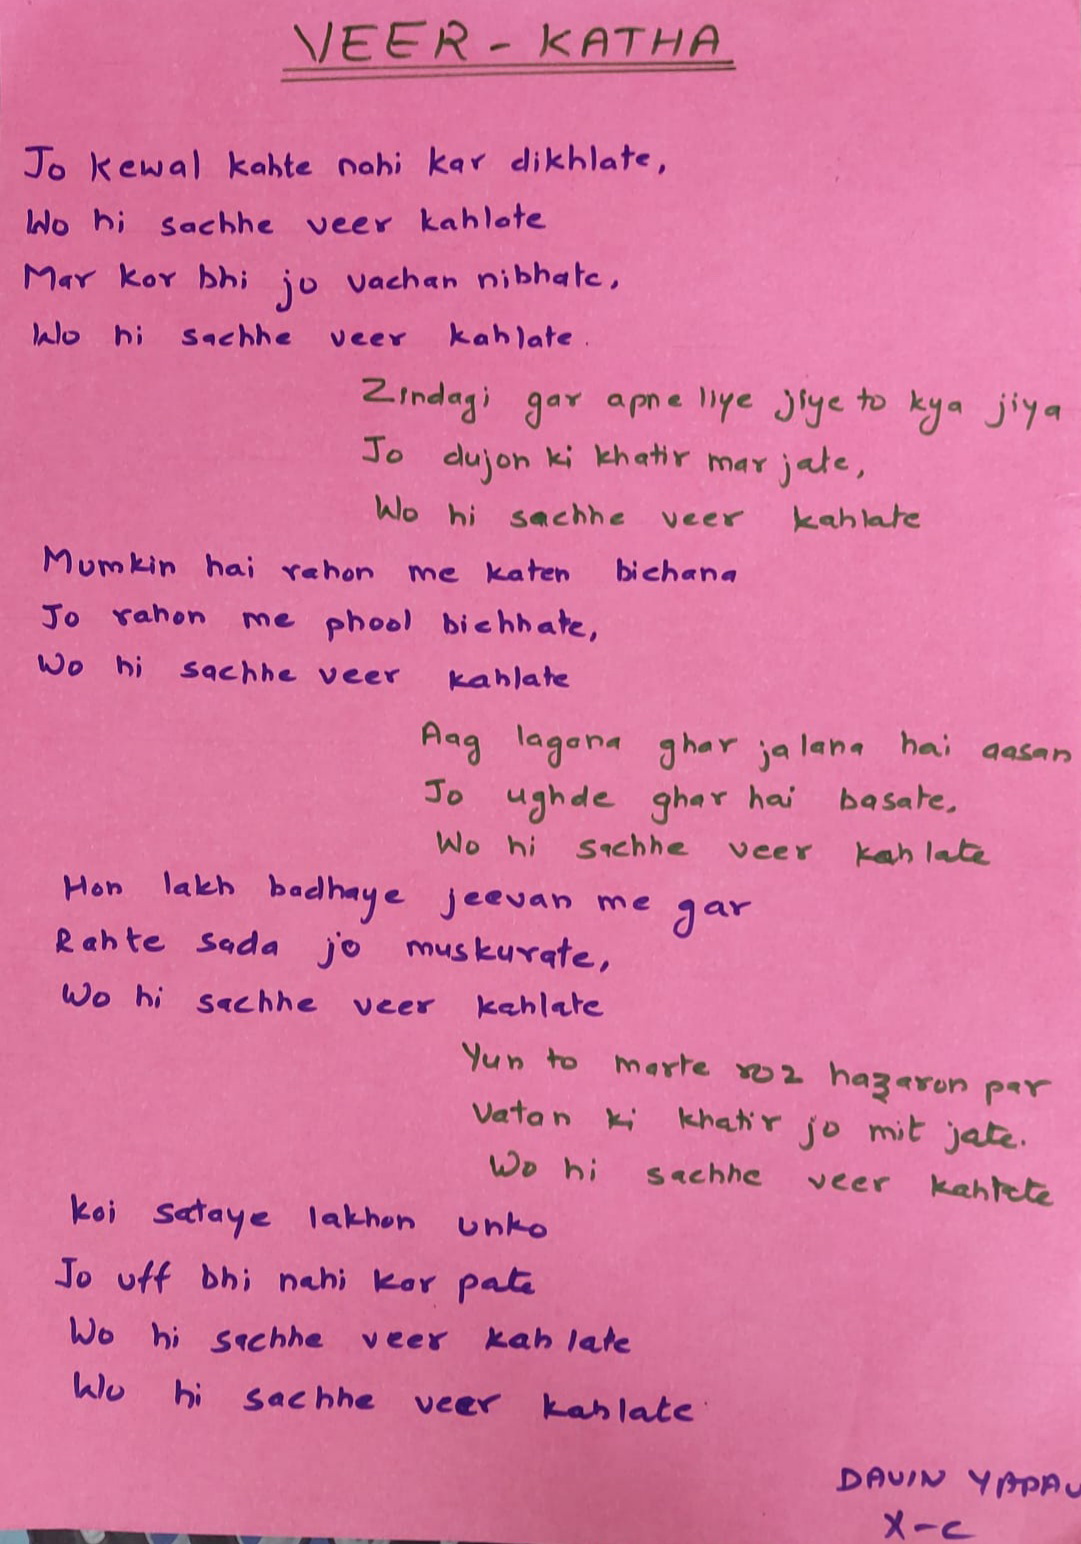 VEER - KATHA
Jo kewal kahte nahi kar dikhlate,
Wo hi sachhe veer kahlate
Mar kar bhi jo vachan nibhate,
Wo hi sachhe veer kahlate.
Zindagi gar apne liye jiye to kya jiya
Jo dujon ki khatir mar jate,
Wo hi sachhe veer kahlate
Mumkin hai rahon me katen bichana
Jo rahon me phool bichhate,
Wo hi sachhe veer kahlate
Aag lagana ghar jalana hai aasan
Jo ughde ghar hai basate,
Wo hi sachhe veer kahlate
Hon lakh badhaye jeevan me gar
Rahte sada jo muskurate,
Wo hi sachhe veer kahlate
Yun to marte roz hazaron par
Vatan ki khatir jo mit jate.
Wo hi sachhe veer kahlate
Koi sataye lakhon unko
Jo uff bhi nahi kar pate
Wo hi sachhe veer kahlate
Wo hi sachhe veer kahlate
DAVIN YADAV
X-C